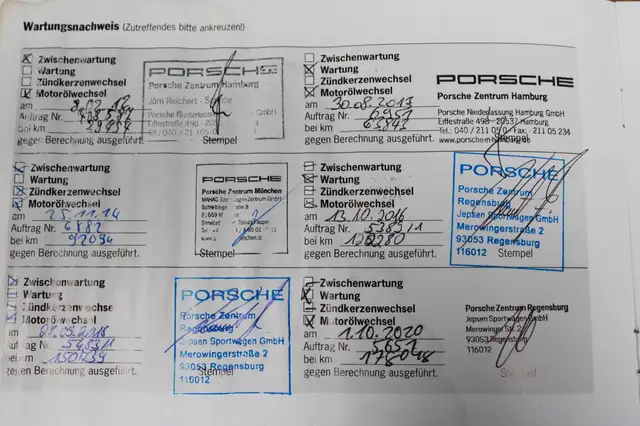 Wartungsnachweis (Zutreffendes bitte ankreuzen!)
Zwischenwartung
Wartung
Zündkerzenwechsel
Motorölwechsel
am
Auftrag Nr.
bei km
gegen Berechnung ausgeführt.
PORSCHE
Porsche Zentrum Hamburg
Jörn Reichert - Service
Porsche Niederlassung Hamburg GmbH
Eiffestraße 498 - 20537 Hamburg
Stempel
Zwischenwartung
Wartung
Zündkerzenwechsel
Motorölwechsel
am 30.08.2013
Auftrag Nr. 6951
bei km
gegen Berechnung ausgeführt.
PORSCHE
Porsche Zentrum Hamburg
Porsche Niederlassung Hamburg GmbH
Eiffestraße 498 - 20537 Hamburg
Tel.: 040 / 211 05 0 · Fax: - 211 05 234
www.porsche-hamburg.de
Stempel
Zwischenwartung
Wartung
Zündkerzenwechsel
Motorölwechsel
am 25.11.14
Auftrag Nr. 6882
bei km 92094
gegen Berechnung ausgeführt.
PORSCHE
Porsche Zentrum München
MAHAG Sportwagen Zentrum GmbH
Stempel
Zwischenwartung
Wartung
Zündkerzenwechsel
Motorölwechsel
am 13.10.2016
Auftrag Nr. 5382/1
bei km 120280
gegen Berechnung ausgeführt.
PORSCHE
Porsche Zentrum
Regensburg
Jepsen Sportwagen GmbH
Merowingerstraße 2
93053 Regensburg
116012
Stempel
Zwischenwartung
Wartung
Zündkerzenwechsel
Motorölwechsel
am
Auftrag Nr.
bei km 150739
gegen Berechnung ausgeführt.
PORSCHE
Porsche Zentrum
Regensburg
Jepsen Sportwagen GmbH
Merowingerstraße 2
93053 Regensburg
116012
Stempel
Zwischenwartung
Wartung
Zündkerzenwechsel
Motorölwechsel
am 1.10.2020
Auftrag Nr. 5651
bei km 178048
gegen Berechnung ausgeführt.
Porsche Zentrum Regensburg
Jepsen Sportwagen GmbH
Merowinger Str. 2
93053 Regensburg
116012
Stempel